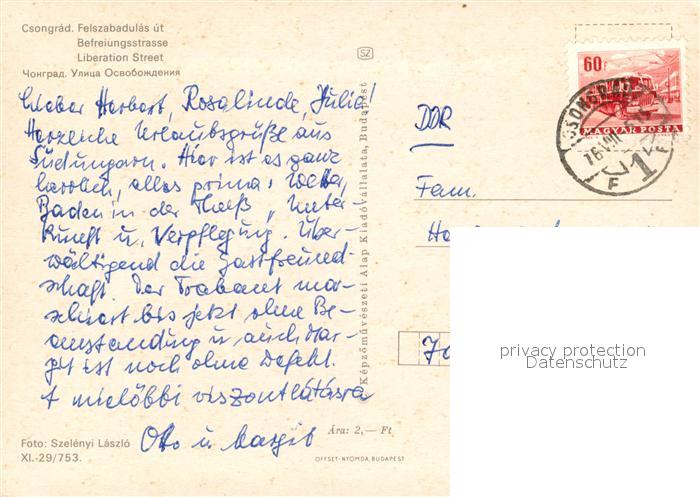 Csongrád. Felszabadulás út
Befreiungsstrasse
Liberation Street
Чонград. Улица Освобождения
SZ
60f
MAGYAR POSTA
CSONGRÁD
76 VIII
1
F
Lieber Herbert, Rosalinde, Julia!
Herzliche Urlaubsgrüße aus
Südungarn. Hier ist es ganz
herrlich, alles prima: Wetter,
Baden in der Theiß, Unter
kunft u. Verpflegung. Über-
wältigend die Gastfreund
schaft. Der Trabant mar-
schiert bis jetzt ohne Be-
anstandung u. auch Mar-
git ist noch ohne Defekt.
A mielőbbi viszontlátásra
Otto u. Margit
DDR
Fam.
Képzőművészeti Alap Kiadóvállalata, Budapest
privacy protection
Datenschutz
Foto: Szelényi László
XI.-29/753.
Ára: 2,— Ft
OFFSET-NYOMDA, BUDAPEST